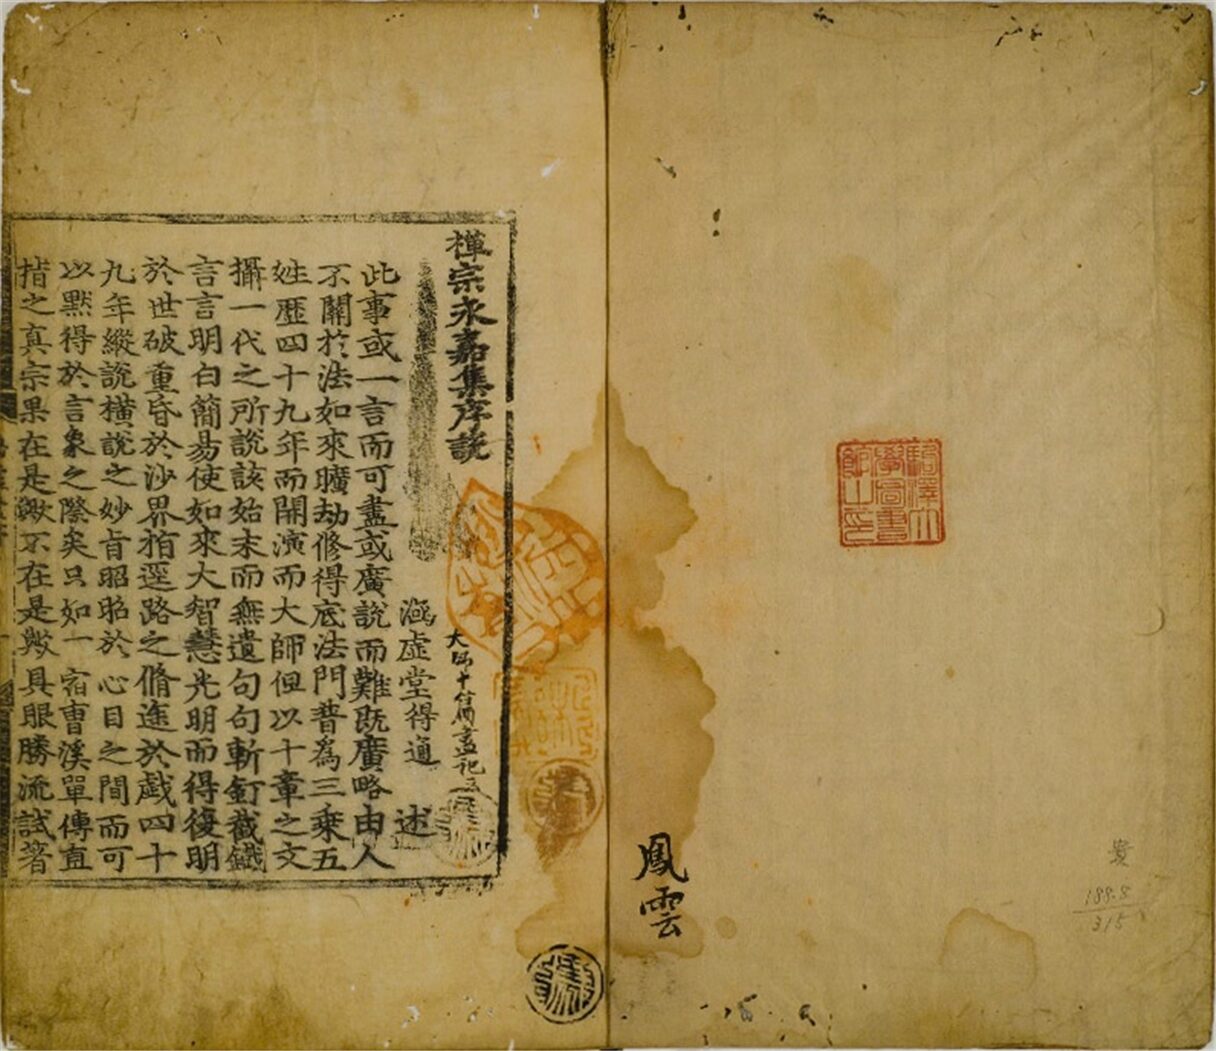 駒澤大
學圖書
館之印
188.8
315
鳳雲
禪宗永嘉集序說
涵虛堂得通 述
此事或一言而可盡或廣說而難既廣略由人
不關於法如來曠劫修得底法門普爲三乘五
姓歷四十九年而開演而大師但以十章之文
攝一代之所說該始末而無遺句句斬釘截鐵
言言明白簡易使如來大智慧光明而得復明
於世破重昏於沙界指遥路之脩途於戱四十
九年縱說橫說之妙旨昭昭於心目之間而可
以默得於言象之際矣只如一宿曺溪單傳直
指之真宗果在是歟不在是歟具眼勝流試著